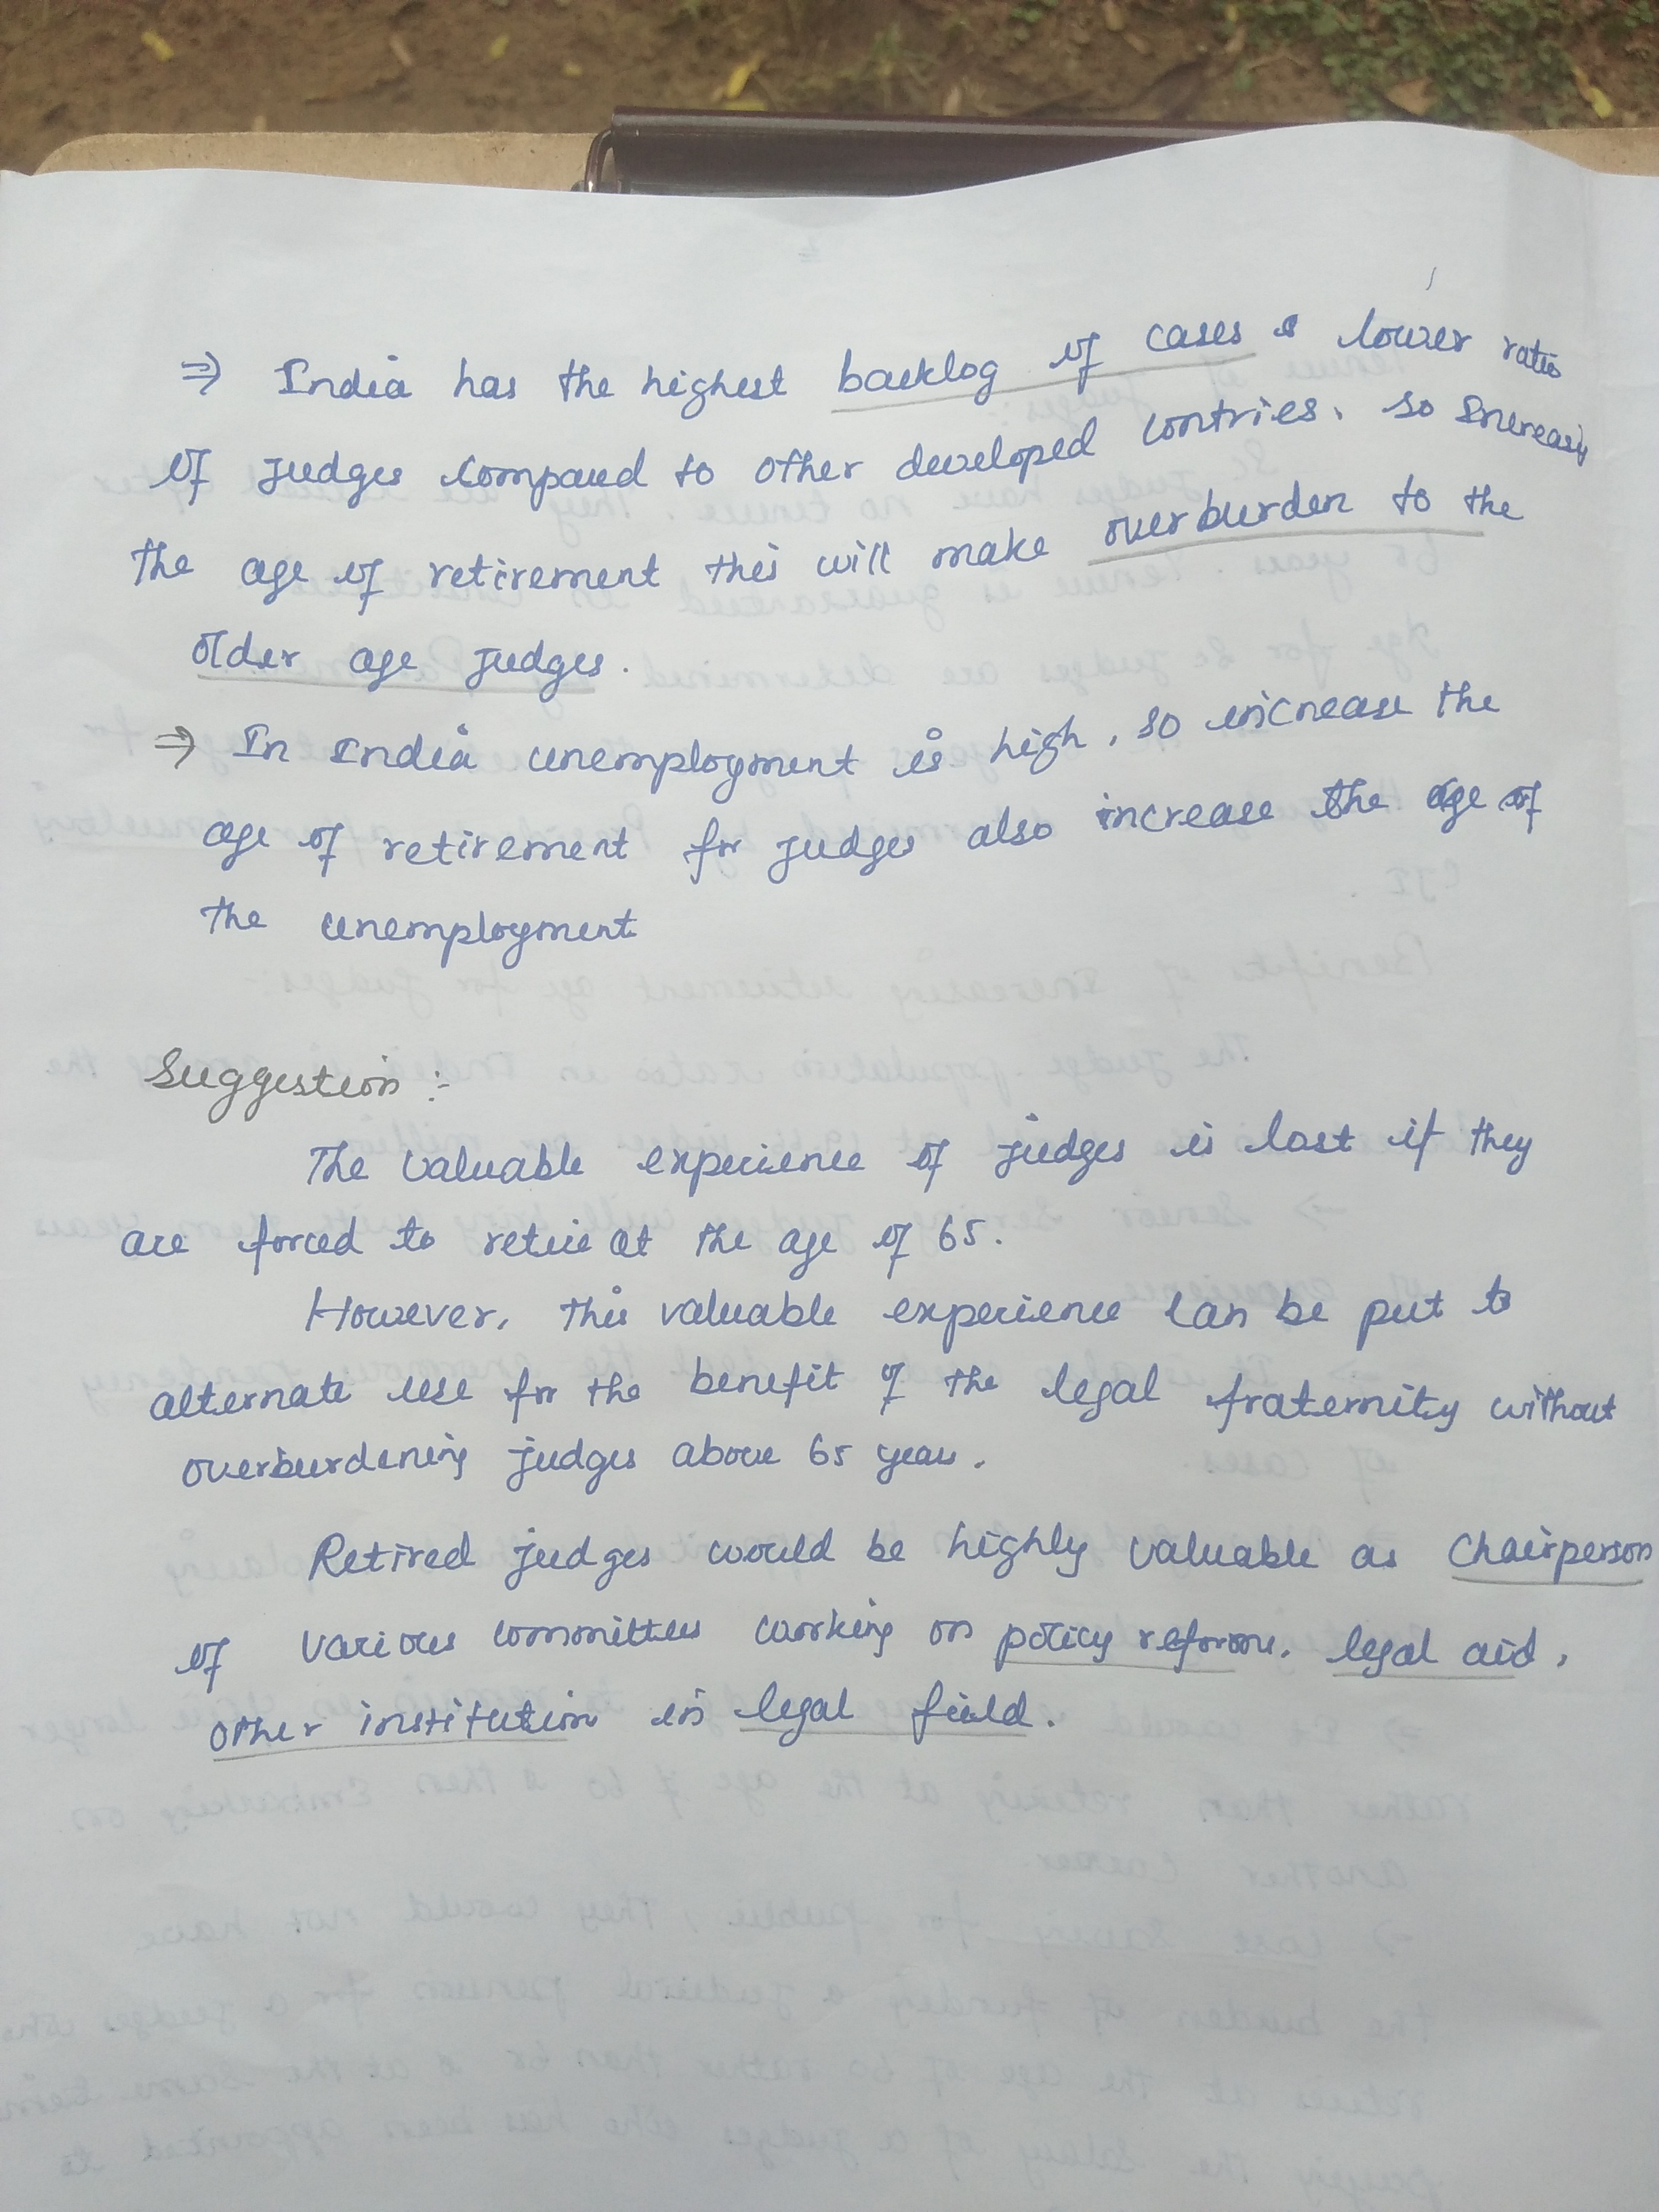 ⇒ India has the highest backlog of cases & lower ratio
of judges compared to other developed contries. So Increasing
the age of retirement this will make overburden to the
older age judges.
⇒ In India unemployment is high, so increase the
age of retirement for judges also increase the age of
the unemployment
Suggestion :-
The valuable experience of judges is lost if they
are forced to retire at the age of 65.
However, this valuable experience can be put to
alternate use for the benefit of the legal fraternity without
overburdening judges above 65 years.
Retired judges would be highly valuable as Chairperson
of various committees working on policy reforms, legal aid,
other institution in legal field.